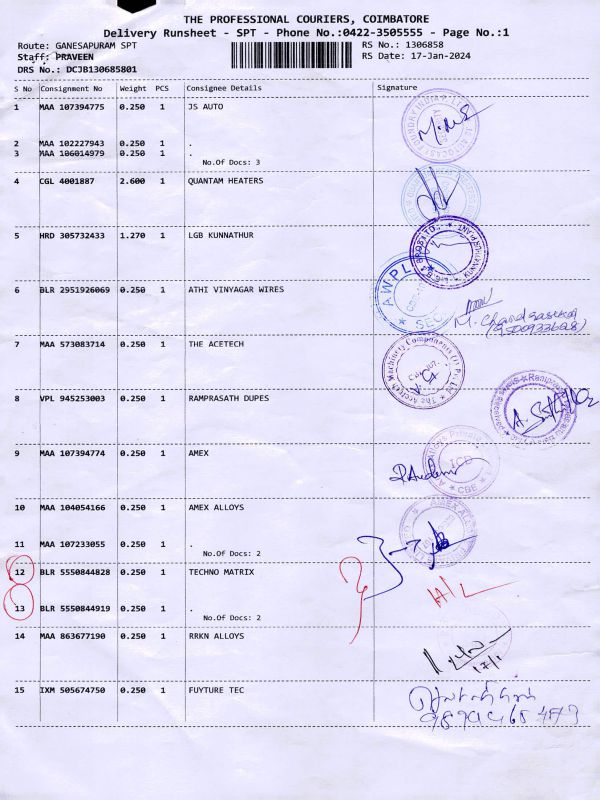 THE PROFESSIONAL COURIERS, COIMBATORE
Delivery Runsheet - SPT - Phone No.:0422-3505555 - Page No.:1
Route: GANESAPURAM SPT RS No.: 1306858
Staff: PRAVEEN RS Date: 17-Jan-2024
DRS No.: DCJB130685801
S No Consignment No Weight PCS Consignee Details Signature
1 MAA 107394775 0.250 1 JS AUTO
2 MAA 102227943 0.250 1 .
3 MAA 106014979 0.250 1 .
No.Of Docs: 3
4 CGL 4001887 2.600 1 QUANTAM HEATERS
5 HRD 305732433 1.270 1 LGB KUNNATHUR
6 BLR 2951926069 0.250 1 ATHI VINYAGAR WIRES
AWPL
SEC
M. Chandrasekar
7 MAA 573083714 0.250 1 THE ACETECH
The Acetech Machinery Components (I) Pvt Ltd
8 VPL 945253003 0.250 1 RAMPRASATH DUPES
9 MAA 107394774 0.250 1 AMEX
ICD
CBE
10 MAA 104054166 0.250 1 AMEX ALLOYS
11 MAA 107233055 0.250 1 .
No.Of Docs: 2
12 BLR 5550844828 0.250 1 TECHNO MATRIX
H/L
13 BLR 5550844919 0.250 1 .
No.Of Docs: 2
14 MAA 863677190 0.250 1 RRKN ALLOYS
17/1
15 IXM 505674750 0.250 1 FUYTURE TEC